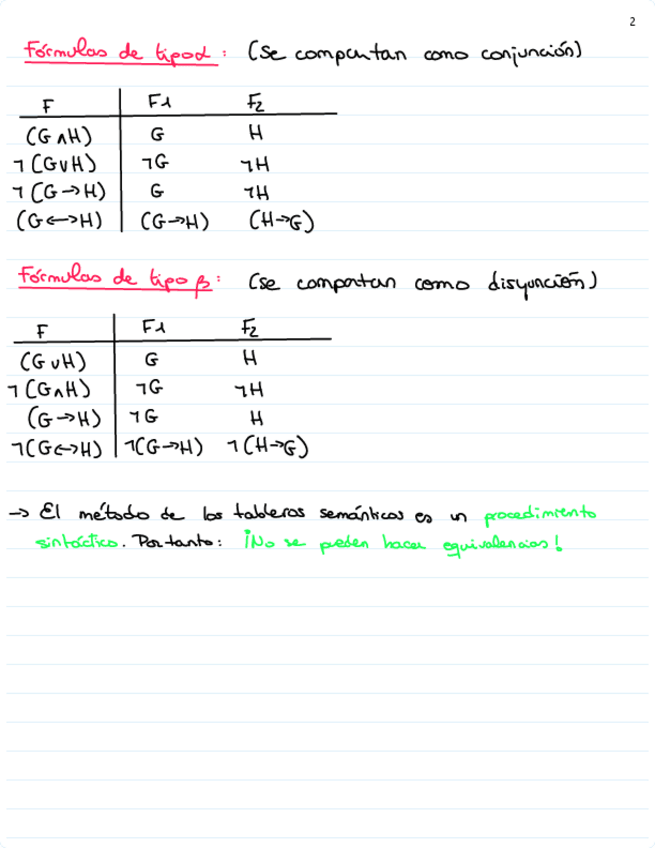 2
Fórmulas de tipo α: (se comportan como conjunción)
F F1 F2
(G∧H) G H
¬(G∨H) ¬G ¬H
¬(G→H) G ¬H
(G↔H) (G→H) (H→G)
Fórmulas de tipo β: (se comportan como disyunción)
F F1 F2
(G∨H) G H
¬(G∧H) ¬G ¬H
(G→H) ¬G H
¬(G↔H) ¬(G→H) ¬(H→G)
→ El método de los tableros semánticos es un procedimiento
sintáctico. Por tanto: ¡No se pueden hacer equivalencias!